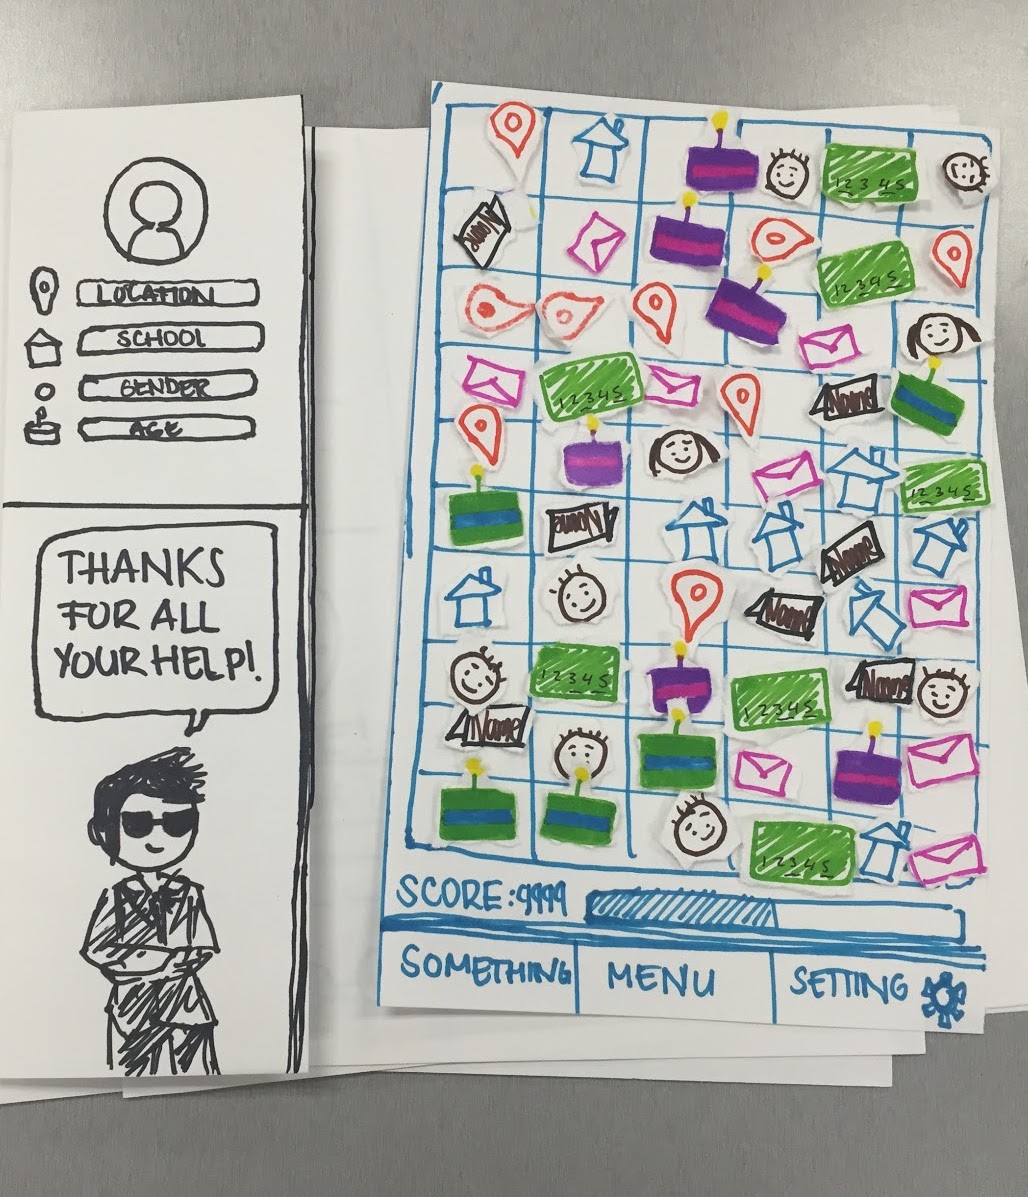 LOCATION
SCHOOL
GENDER
AGE
THANKS
FOR ALL
YOUR HELP!
12345
Name
12345
12345
Name
12345
Name
Name
Name
12345
12345
Name
Name
12345
SCORE:9999
SOMETHING
MENU
SETTING